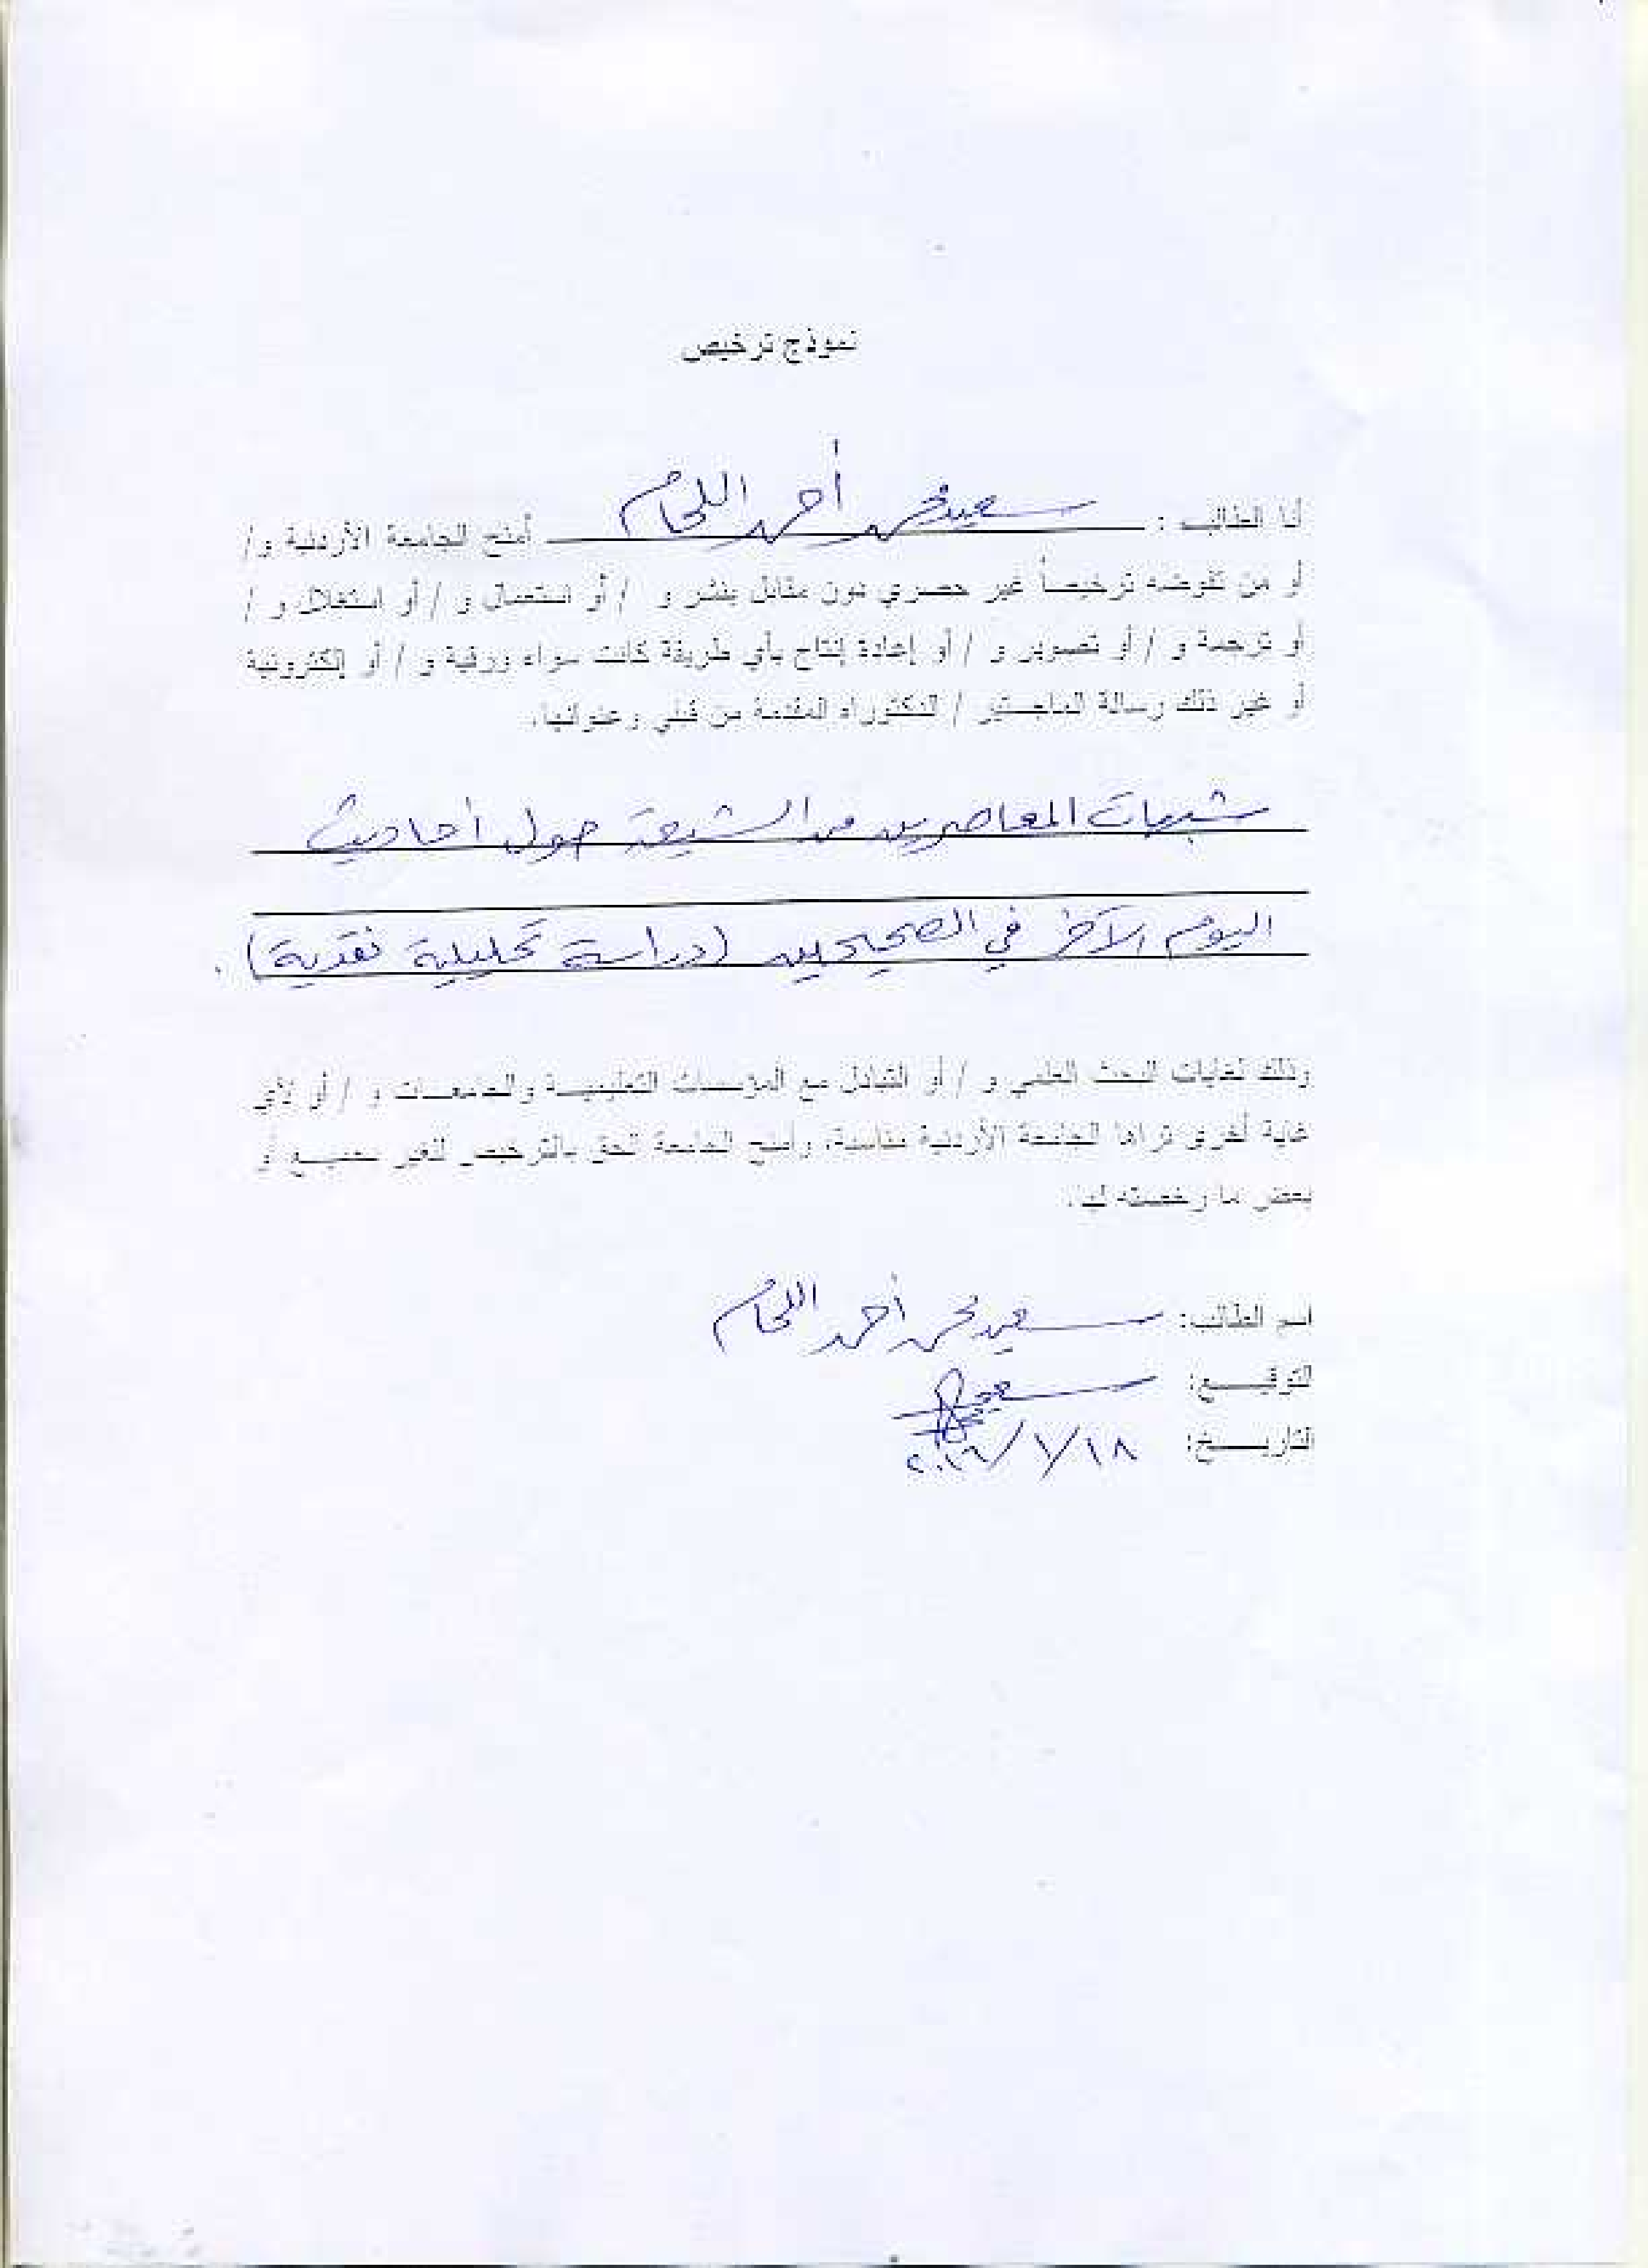 نموذج ترخيص
أنا الطالب : سعيد محمد أحمد اللحام أمنح الجامعة الأردنية و/
أو من تفوضه ترخيصاً غير حصري دون مقابل بنشر و / أو استعمال و / أو استغلال و /
أو ترجمة و / أو تصوير و / أو إعادة إنتاج بأي طريقة كانت سواء ورقية و / أو إلكترونية
أو غير ذلك رسالة الماجستير / الدكتوراه المقدمة من قبلي وعنوانها.
شبهات المعاصرين من الشيعة حول أحاديث
اليوم الآخر في الصحيحين (دراسة تحليلية نقدية).
وذلك لغايات البحث العلمي و / أو التبادل مع المؤسسات التعليمية والجامعات و / أو لأي
غاية أخرى تراها الجامعة الأردنية مناسبة، وأمنح الجامعة الحق بالترخيص للغير بجميع أو
بعض ما رخصته لها.
اسم الطالب: سعيد محمد أحمد اللحام
التوقيع: سعيد
التاريخ: ١٨/١/